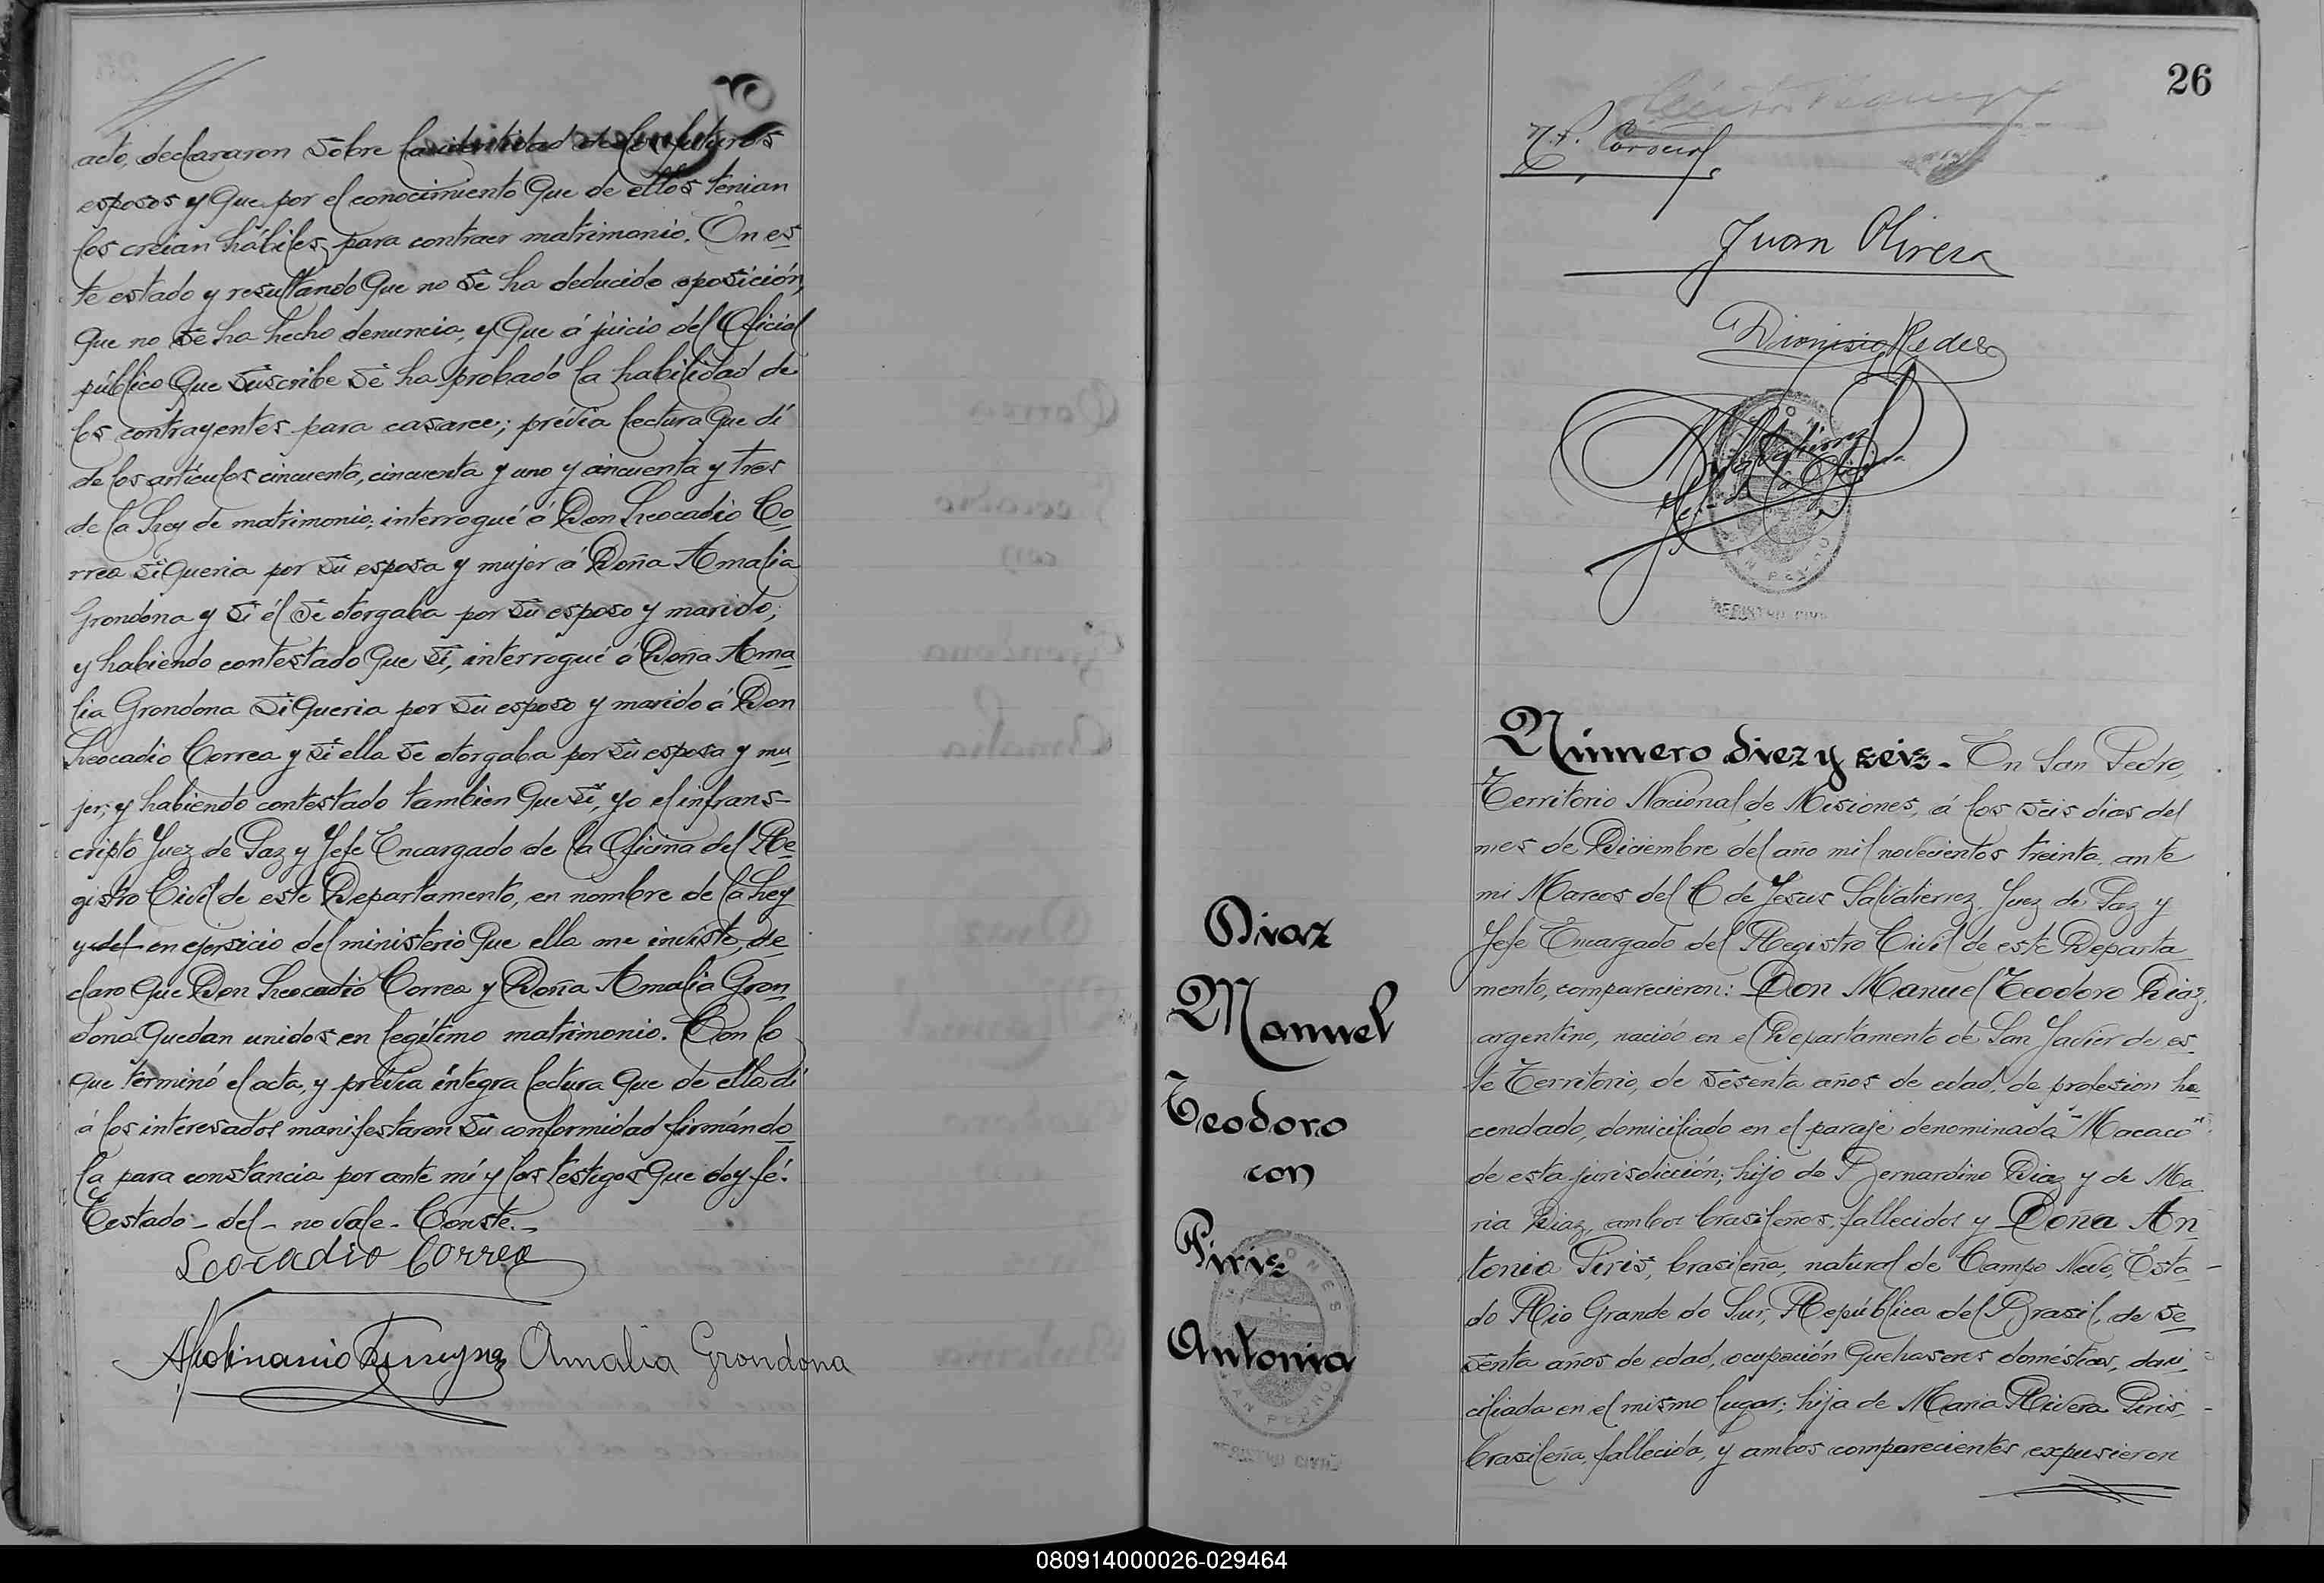 acto, declararon sobre la identidad de los futuros
esposos y que por el conocimiento que de ellos tenian
los creian hábiles para contraer matrimonio. En es
te estado y resultando que no se ha deducido oposición,
que no se ha hecho denuncia, y que á juicio del Oficial
público que suscribe se ha probado la habilidad de
los contrayentes para casarce; prévia lectura que dí
de los artículos cincuenta, cincuenta y uno y cincuenta y tres
de la Ley de matrimonio; interrogué á Don Leocadio Co
rrea si queria por su esposa y mujer á Doña Amalia
Grondona y si él se otorgaba por su esposo y marido;
y habiendo contestado que si, interrogué á Doña Ama
lia Grondona si queria por su esposo y marido á Don
Leocadio Correa y si ella se otorgaba por su esposa y mu
jer; y habiendo contestado tambien que si, yo el infrans-
cripto Juez de Paz y Jefe Encargado de la Oficina del Re
gistro Civil de este Departamento, en nombre de la Ley
y del en ejersicio del ministerio que ella me inviste, de
claro que Don Leocadio Correa y Doña Amalia Gron
dona quedan unidos en legítimo matrimonio. Con lo
que terminó el acta, y prévia íntegra lectura que de ella dí
á los interesados manifestaron su conformidad firmándo
la para constancia por ante mí y los testigos que doy fé.
Testado - del - no vale - Conste. -
Leocadio Correa
Amalia Grondona
26
Juan Olivera
Dionisio
SAN PEDRO
REGISTRO CIVIL
Diaz
Manuel
Teodoro
con
Piris
Antonia
MISIONES
SAN PEDRO
REGISTRO CIVIL
Número diez y seis. En San Pedro,
Territorio Nacional de Misiones, á los seis dias del
mes de Diciembre del año mil novecientos treinta, ante
mi Marcos del C de Jesus Salvatierrez, Juez de Paz y
Jefe Encargado del Registro Civil de este Departa
mento, comparecieron: Don Manuel Teodoro Diaz,
argentino, nacido en el Departamento de San Javier de es
te Territorio, de sesenta años de edad, de profesion ha
cendado, domiciliado en el paraje denominada "Macaco"
de esta jurisdicción; hijo de Bernardino Diaz y de Ma
ria Diaz, ambos brasileños, fallecidos y Doña An
tonia Piris, brasileña, natural de Campo Novo, Esta-
do Rio Grande do Sur, República del Brasil, de se
senta años de edad, ocupación quehaseres domésticos, domi
ciliada en el mismo lugar; hija de Maria Rivera Piris,
brasileña, fallecida, y ambos comparecientes expusieron
080914000026-029464